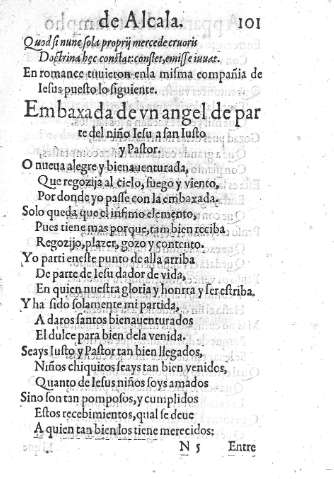 de Alcala. 101
Quod si nunc sola proprij mercede cruoris
Doctrina hęc constat: constet, emisse iuuat.
En romance tuuieron enla misma compañia de
Iesus puesto lo siguiente.
Embaxada de vn angel de par
te del niño Iesu a san Iusto
y Pastor.
O nueua alegre y bienauenturada,
Que regozija al cielo, fuego y viento,
Por donde yo passe con la embaxada.
Solo queda que el infimo elemento,
Pues tiene mas porque, tambien reciba
Regozijo, plazer, gozo y contento.
Yo parti eneste punto de alla arriba
De parte de Iesu dador de vida,
En quien nuestra gloria y honrra y ser estriba.
Y ha sido solamente mi partida,
A daros santos bienauenturados
El dulce para bien dela venida.
Seays Iusto y Pastor tan bien llegados,
Niños chiquitos seays tan bien venidos,
Quanto de Iesus niños soys amados
Sino son tan pomposos, y cumplidos
Estos recebimientos, qual se deue
A quien tan bien los tiene merecidos:
N 5 Entre